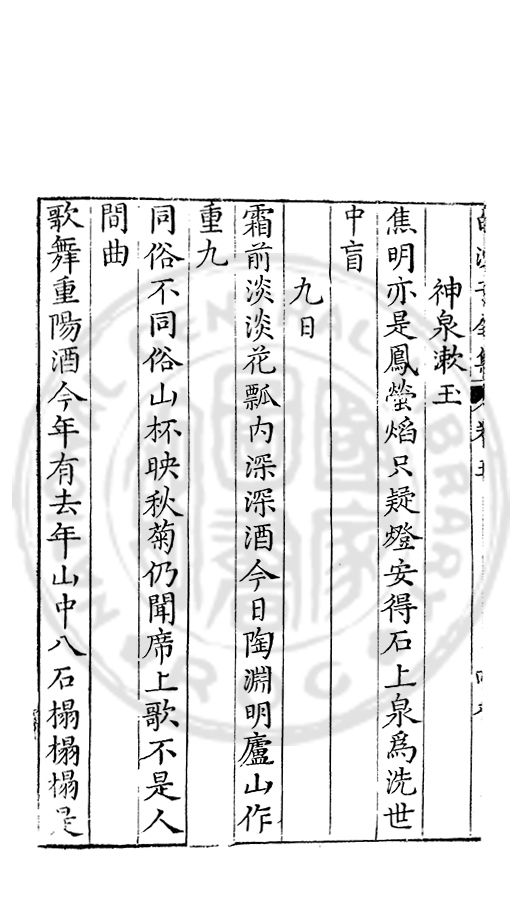 神泉漱玉
焦明亦是鳳螢焰只疑燈安得石上泉爲洗世
中盲
九日
霜前淡淡花瓢内深深酒今日陶淵明廬山作
重九
同俗不同俗山杯映秋菊仍聞席上歌不是人
間曲
歌舞重陽酒今年有去年山中八石榻榻榻是